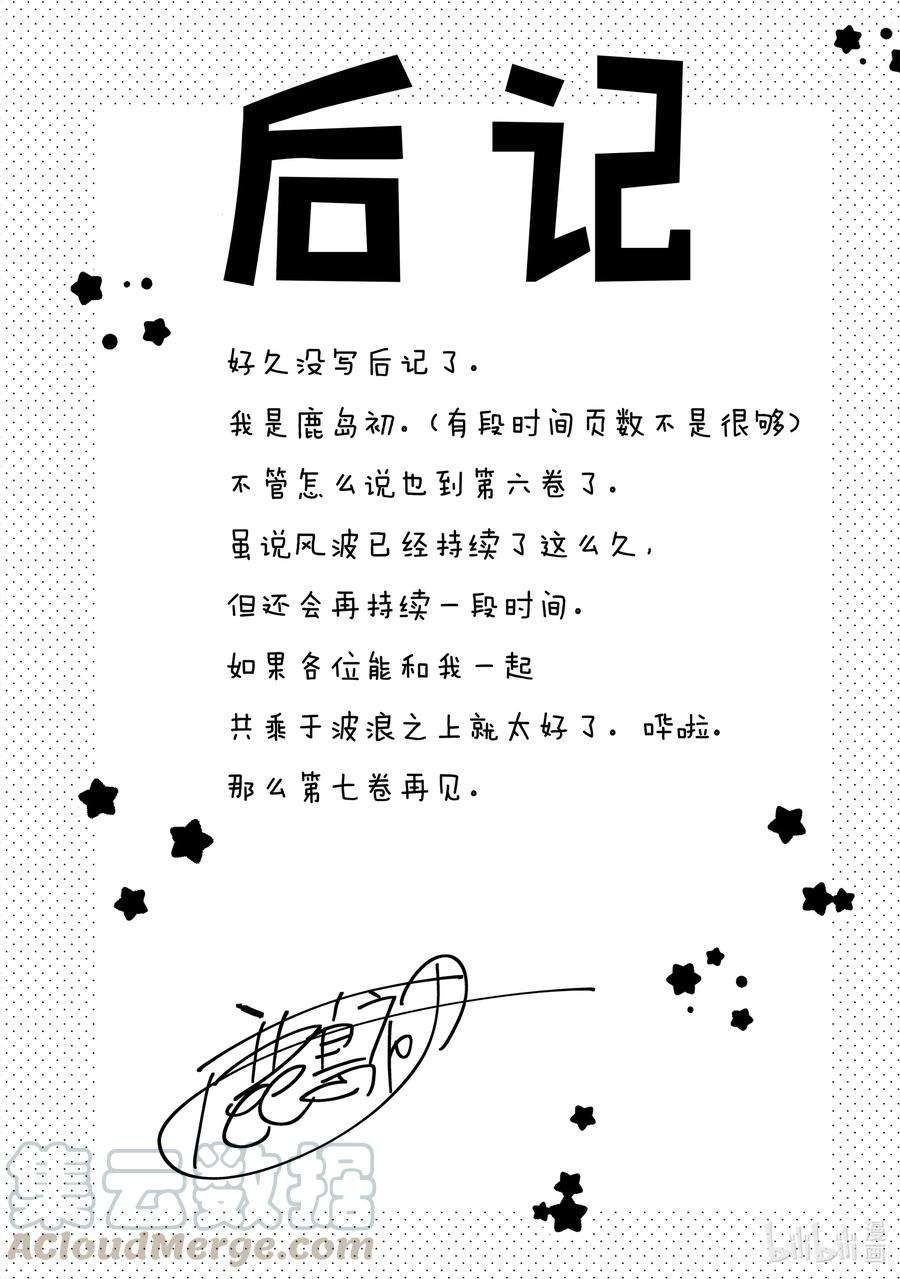 后记
好久没写后记了。
我是鹿岛初。（有段时间页数不是很够）
不管怎么说也到第六卷了。
虽说风波已经持续了这么久，
但还会再持续一段时间。
如果各位能和我一起
共乘于波浪之上就太好了。哗啦。
那么第七卷再见。
集云数据
ACloudMerge.com
bilibili 漫画